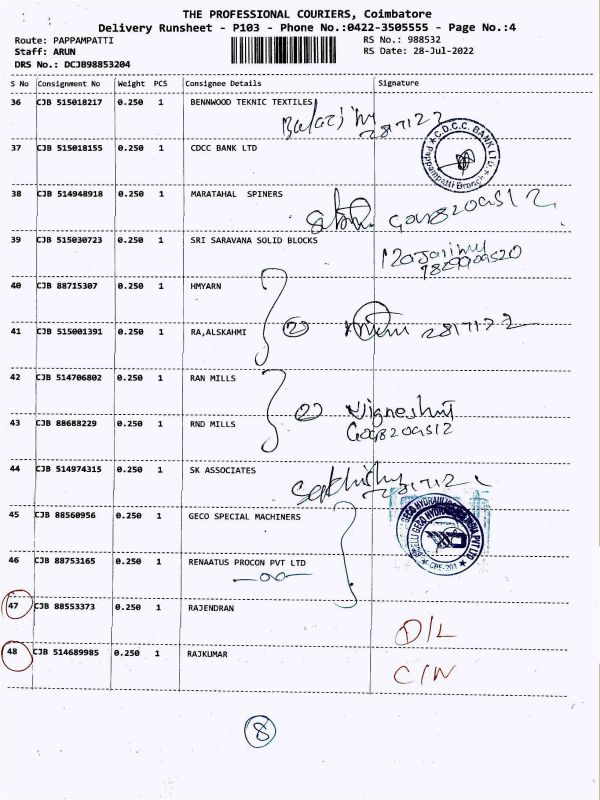 THE PROFESSIONAL COURIERS, Coimbatore
Delivery Runsheet - P103 - Phone No.:0422-3505555 - Page No.:4
Route: PAPPAMPATTI RS No.: 988532
Staff: ARUN RS Date: 28-Jul-2022
DRS No.: DCJB98853204
S No Consignment No Weight PCS Consignee Details Signature
36 CJB 515018217 0.250 1 BENNWOOD TEKNIC TEXTILES
28/7/22
37 CJB 515018155 0.250 1 CDCC BANK LTD
C.D.C.C. BANK LTD
Pappampatti Branch
38 CJB 514948918 0.250 1 MARATAHAL SPINERS
39 CJB 515030723 0.250 1 SRI SARAVANA SOLID BLOCKS
40 CJB 88715307 0.250 1 HMYARN
41 CJB 515001391 0.250 1 RA,ALSKAHMI
2 28/7/22
42 CJB 514706802 0.250 1 RAN MILLS
2 Vignesh
43 CJB 88688229 0.250 1 RND MILLS
44 CJB 514974315 0.250 1 SK ASSOCIATES
45 CJB 88560956 0.250 1 GECO SPECIAL MACHINERS
46 CJB 88753165 0.250 1 RENAATUS PROCON PVT LTD
47 CJB 88553373 0.250 1 RAJENDRAN
D/L
48 CJB 514689985 0.250 1 RAJKUMAR
C/N
8